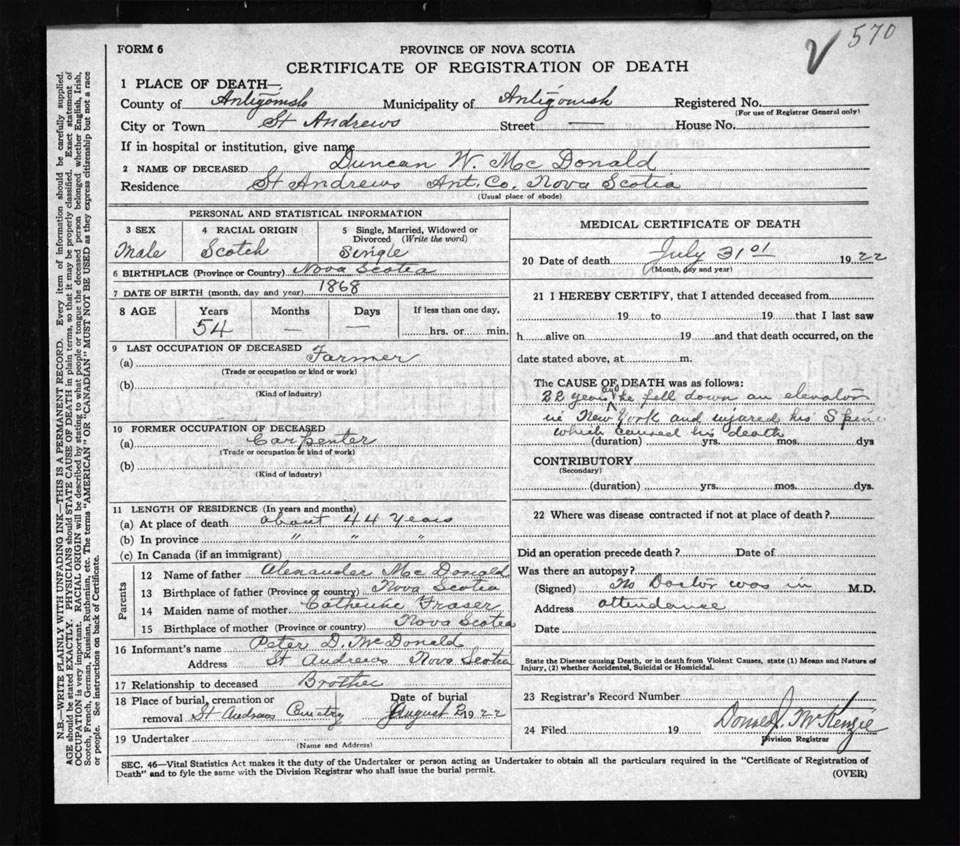 570
FORM 6
PROVINCE OF NOVA SCOTIA
CERTIFICATE OF REGISTRATION OF DEATH
1 PLACE OF DEATH—
County of Antigonish Municipality of Antigonish Registered No.
(For use of Registrar General only)
City or Town St Andrews Street — House No.
If in hospital or institution, give name
2 NAME OF DECEASED Duncan W. McDonald
Residence St Andrews Ant. Co. Nova Scotia
(Usual place of abode)
PERSONAL AND STATISTICAL INFORMATION
3 SEX 4 RACIAL ORIGIN 5 Single, Married, Widowed or Divorced (Write the word)
Male Scotch Single
6 BIRTHPLACE (Province or Country) Nova Scotia
7 DATE OF BIRTH (month, day and year) 1868
8 AGE Years Months Days If less than one day,
54 — — hrs. or min.
9 LAST OCCUPATION OF DECEASED
(a) Farmer
(Trade or occupation or kind or work)
(b)
(Kind of industry)
10 FORMER OCCUPATION OF DECEASED
(a) Carpenter
(Trade or occupation or kind of work)
(b)
(Kind of industry)
11 LENGTH OF RESIDENCE (In years and months)
(a) At place of death about 44 Years
(b) In province " " "
(c) In Canada (if an immigrant)
Parents
12 Name of father Alexander McDonald
13 Birthplace of father (Province or country) Nova Scotia
14 Maiden name of mother Catherine Fraser
15 Birthplace of mother (Province or country) Nova Scotia
16 Informant's name Peter D. McDonald
Address St Andrews Nova Scotia
17 Relationship to deceased Brother
18 Place of burial, cremation or removal St Andrews Cemetry Date of burial August 2 1922
19 Undertaker
(Name and Address)
MEDICAL CERTIFICATE OF DEATH
20 Date of death July 31st 1922
(Month, day and year)
21 I HEREBY CERTIFY, that I attended deceased from
19 to 19 that I last saw
h alive on 19 and that death occurred, on the
date stated above, at m.
The CAUSE OF DEATH was as follows:
22 years ago he fell down an elevator
in New York and injured his Spine
which caused his death
(duration) yrs. mos. dys
CONTRIBUTORY
(Secondary)
(duration) yrs. mos. dys.
22 Where was disease contracted if not at place of death?
Did an operation precede death? Date of
Was there an autopsy?
(Signed) No Doctor was in M.D.
Address attendance
Date
State the Disease causing Death, or in death from Violent Causes, state (1) Means and Nature of
Injury, (2) whether Accidental, Suicidal or Homicidal.
23 Registrar's Record Number
24 Filed 19 McKenzie
Division Registrar
SEC. 46—Vital Statistics Act makes it the duty of the Undertaker or person acting as Undertaker to obtain all the particulars required in the "Certificate of Registration of
Death" and to fyle the same with the Division Registrar who shall issue the burial permit. (OVER)
N.B.—WRITE PLAINLY WITH UNFADING INK—THIS IS A PERMANENT RECORD. Every item of information should be carefully supplied.
AGE should be stated EXACTLY. PHYSICIANS should STATE CAUSE OF DEATH in plain terms, so that it may be properly classified. Exact statement of
OCCUPATION is very important. RACIAL ORIGIN will be described by stating to what people or tongue the deceased person belonged whether English, Irish,
Scotch, French, German, Russian, Ruthenian, etc. The terms "AMERICAN" OR "CANADIAN" MUST NOT BE USED as they express citizenship but not a race
or people. See instructions on back of Certificate.